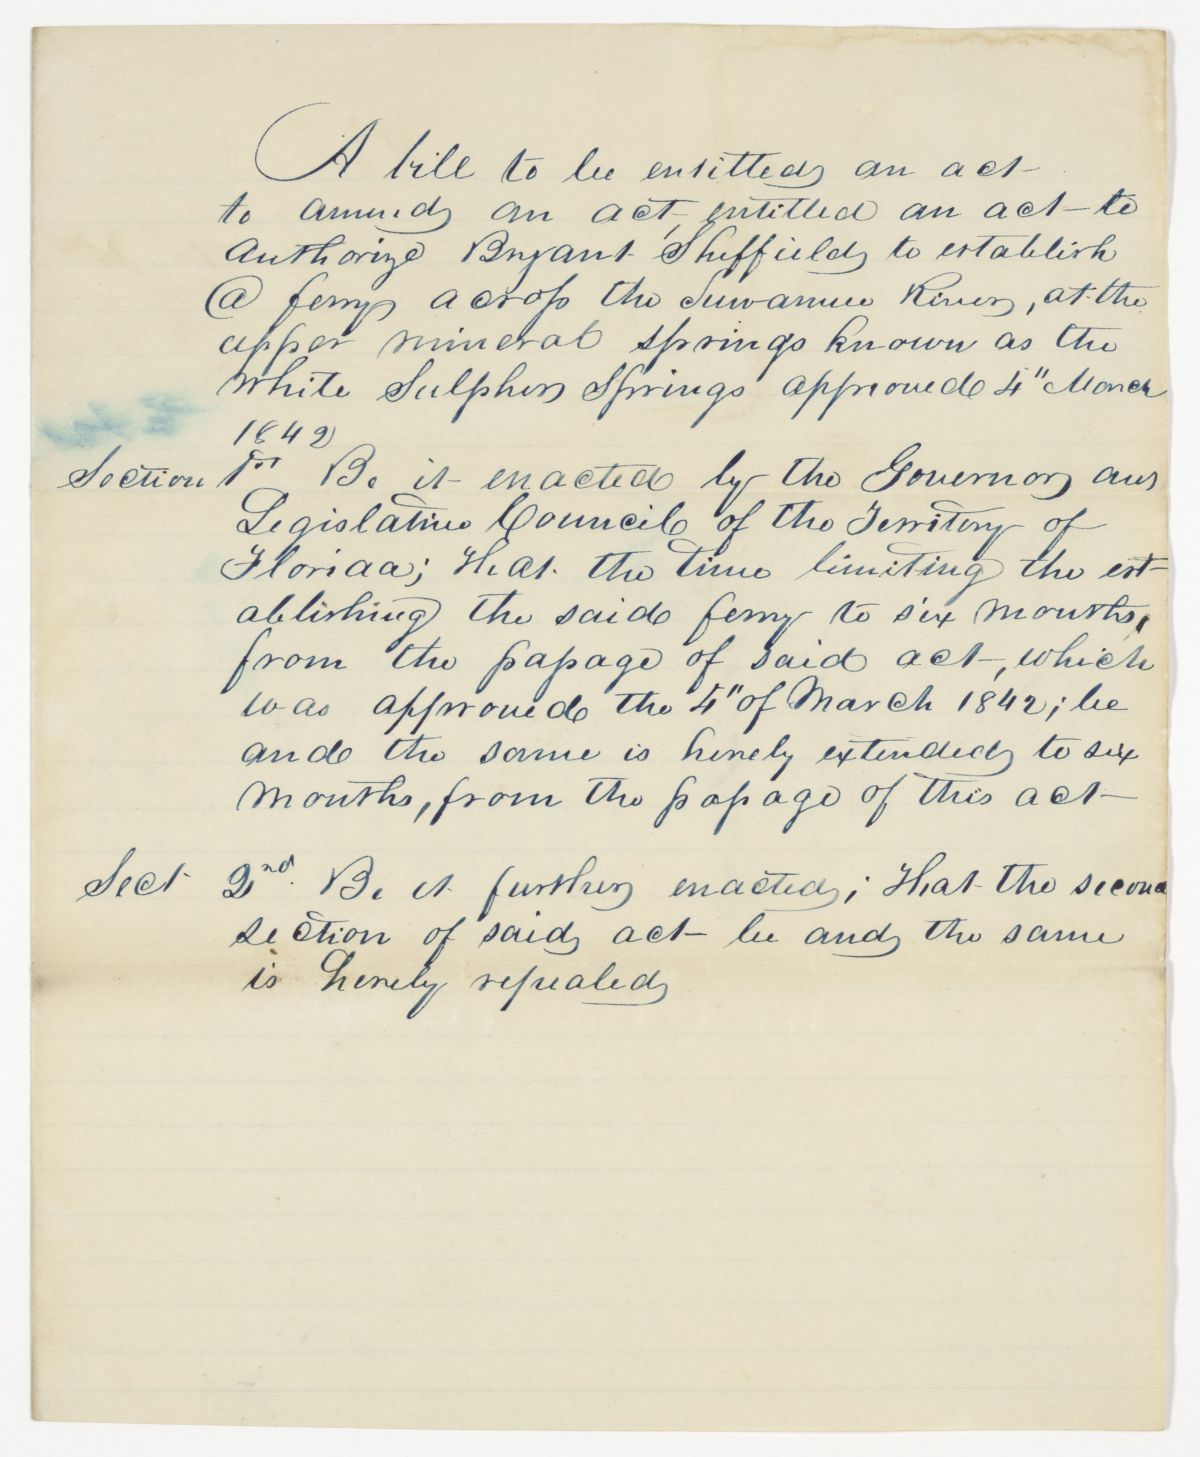 A bill to be entitled an act
to amend an act, entitled an act to
authorize Bryant Sheffield to establish
@ ferry across the Suwannee River, at the
upper mineral springs known as the
White Sulpher Springs approved 4" March
1842
Section 1st Be it enacted by the Governor and
Legislative Council of the Territory of
Florida; That the time limiting the est-
ablishing the said ferry to six months,
from the passage of said act, which
was approved the 4" of March 1842; be
and the same is hereby extended to six
months, from the passage of this act
Sect 2nd. Be it further enacted; That the second
section of said act be and the same
is hereby repealed